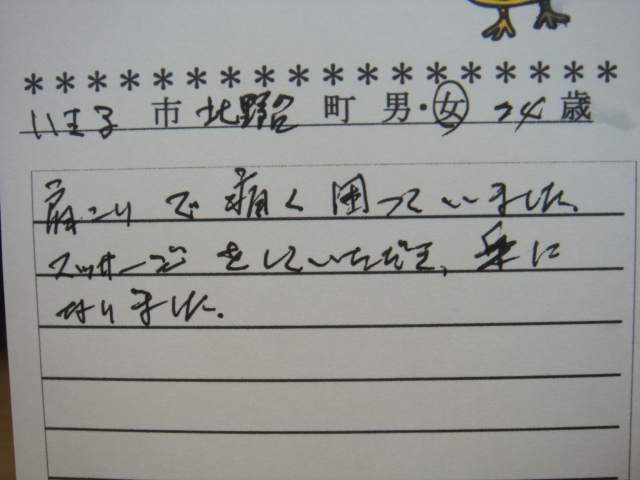 ******************
八王子市北野台町男・女24歳
肩こりで痛く困っていました。
マッサージをしていただき、楽に
なりました。